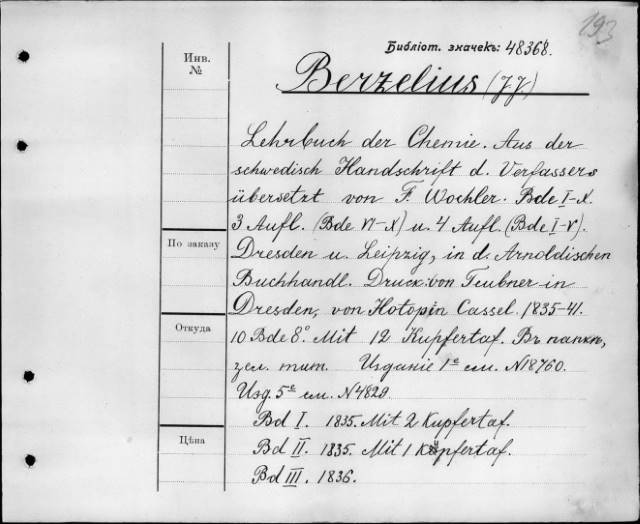 193
Библіот. значекъ: 48368.
Инв.
№
Berzelius (J.J.)
Lehrbuch der Chemie. Aus der
schwedisch Handschrift d. Verfassers
übersetzt von F. Woehler. Bde I-X.
3 Aufl. (Bde VI-X) u. 4 Aufl. (Bde I-V).
По заказу
Dresden u. Leipzig, in d. Arnoldischen
Buchhandl. Druck: von Teubner in
Dresden, von Hotop in Cassel. 1835-41.
Откуда
10 Bde 8°. Mit 12 Kupfertaf. Въ папкѣ,
зел. тит. Изданіе 1е см. N18760.
Изд. 5е см. N4829
Bd I. 1835. Mit 2 Kupfertaf.
Цѣна
Bd II. 1835. Mit 1 Kupfertaf.
Bd III. 1836.